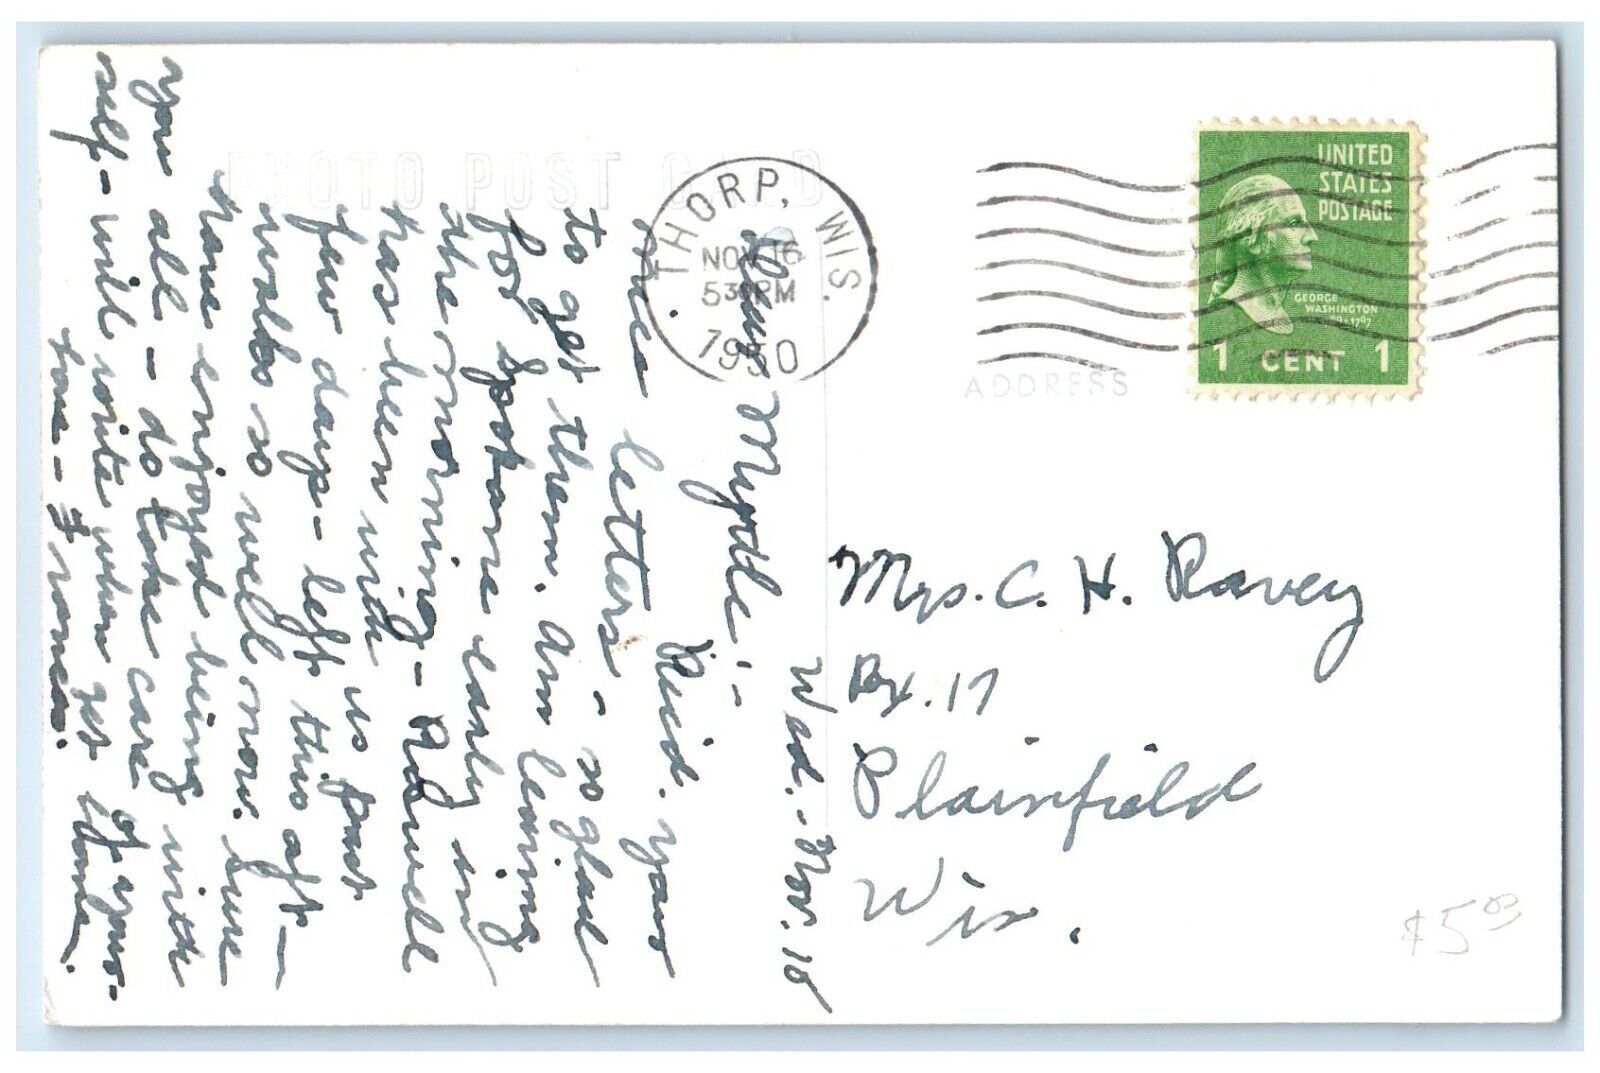 PHOTO POST CARD
THORP, WIS.
NOV 16
530 PM
1950
UNITED
STATES
POSTAGE
GEORGE
WASHINGTON
1 CENT 1
ADDRESS
Mrs. C. H. Ravey
Bx. 17
Plainfield
Wis.
$5.00
Wed. - Nov. 15
Dear Myrtle: -
Rec'd. your
nice letters - so glad
to get them. Am leaving
for Spokane early in
the morning -
has been with us past
few days - left this aft -
walks so well now. Sure
have enjoyed being with
you all - do take care of your-
self - will write when get home.
Love -